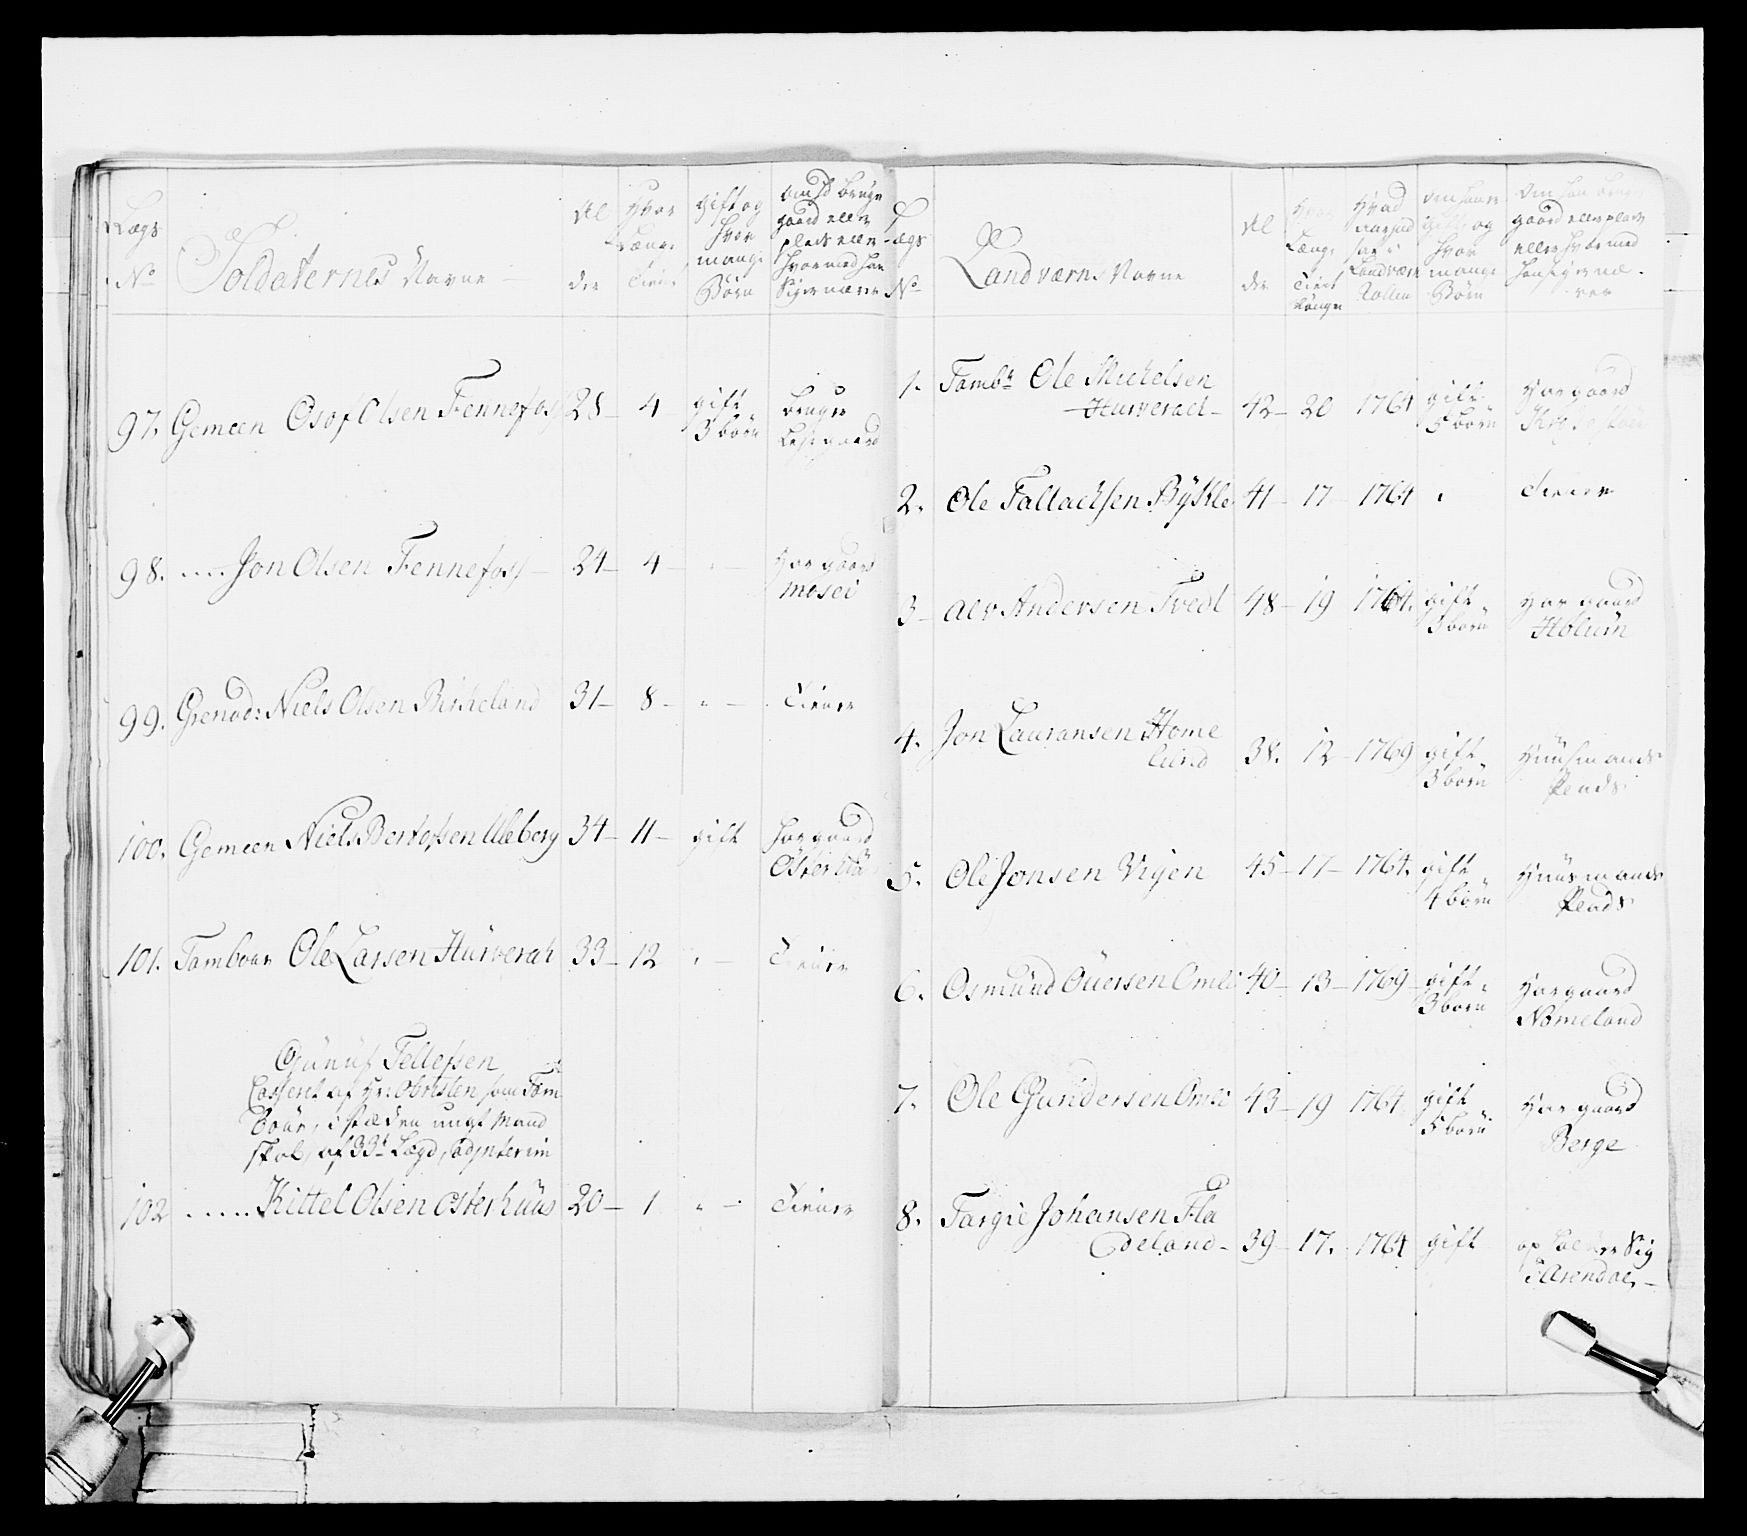 Lægs No
Soldaternes Navne
Al der
Hvor Længe Tient
gift og hvor mange Börn
om hand bruger gaard eller plads eller hvormed han Sig ernærer
97. Gemeen Osof Olsen Fennefoss 28 - 4 - gift 3 börn
bruger Leje gaard
98. ..... Jon Olsen Fennefoss - 24 - 4 - " - Har gaard
Mosei
99. Grenad: Niels Olsen Birkeland 31 - 8 - " - Tiener
100. Gemeen Niels Bertofsen Uleberg 34 - 11 - gift har gaard
101. Tambour Ole Larsen Hurverak 33 - 12 " - Tiener
Gunuf Tellefsen
Casseret af Hr: Obristen, som Tam
bour, i stæden ungt Mand
skol, af 33te Lægd, ad Interim
102 ..... Kittel Olsen Osterhuus 20 - 1 " - Tiener
Lægs No
Landværns Navne
Al der
Hvor Længe Tient
Hvad aar sad i Landværn Rollen
Om haar Gift og hvor mange Börn
Om han bruger gaard eller plads eller hvormed han sig ernærer
1. Tambr Ole Michelsen
Hurverach - 42 - 20 1764 gift 5 börn Har gaard
2. Ole Tallachsen Bÿkle 41 - 17 - 1764 " Tiener
3 - Alv Andersen Tvedt 48 - 19 1764. gift 3 börn Har gaard
Holum
4. Jon Lauransen Home
lund 38. 12 - 1769 gift 3 börn Huusmands
Plads
5. Ole Jonsen Vijen 45 - 17 - 1764. gift 4 börn Huusmands
Plads
6. Osmund Ouersen Omli 40 - 13 - 1769 - gift 3 börn Har gaard
Nomeland
7. Ole Gundersen Omli 43 - 19 1764 gift 5 börn Har gaard
Berge
8. Targie Johansen Fla
deland - 39 - 17. 1764 gift op holder Sig
i Arendal -